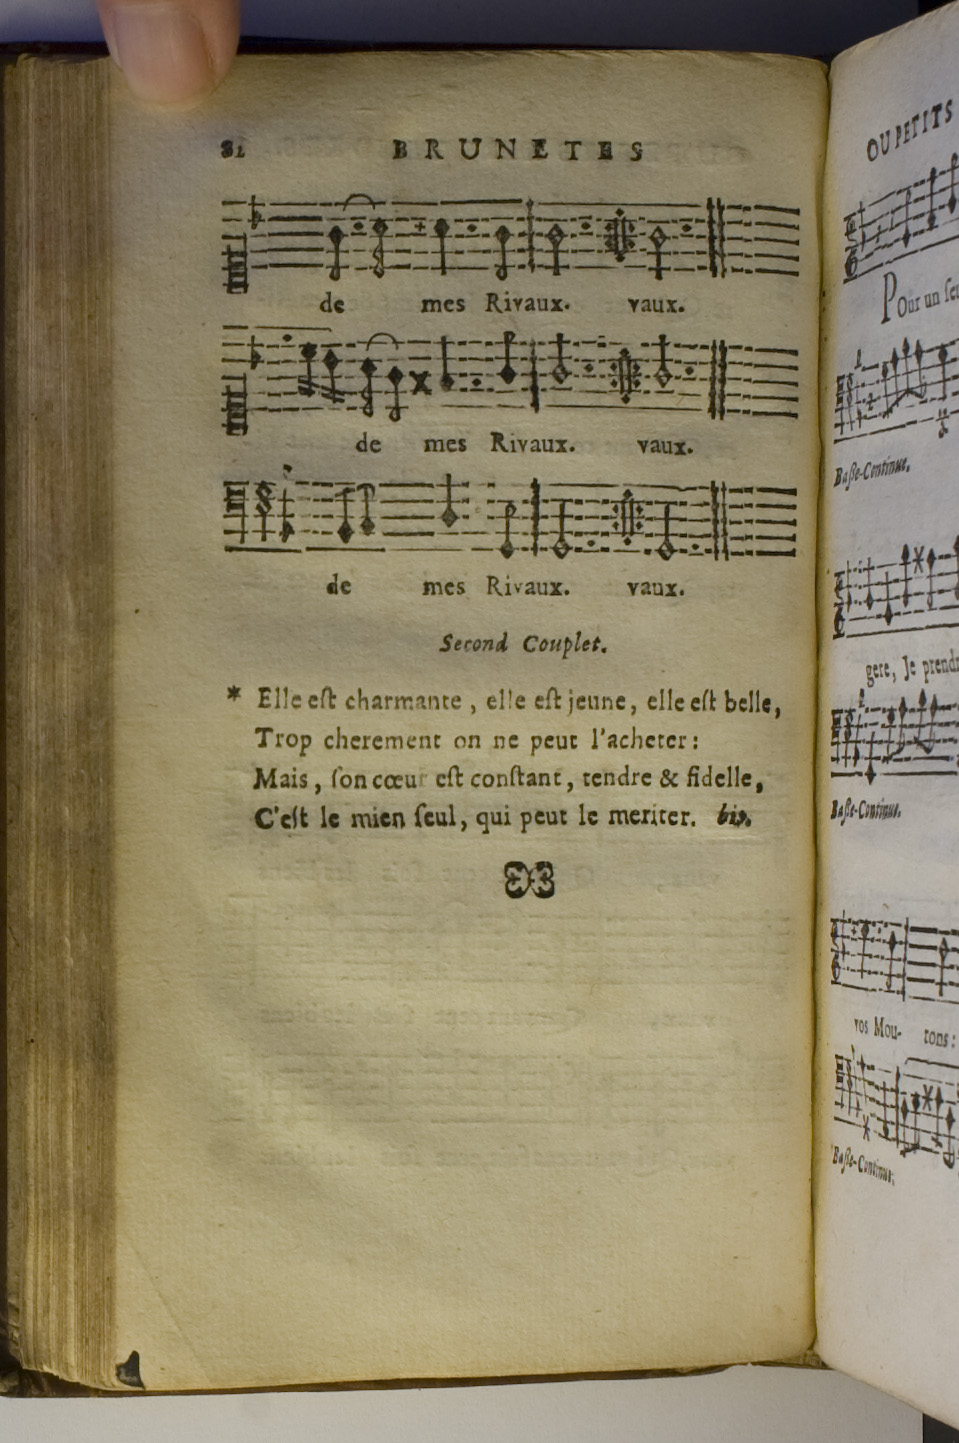 82 BRUNETES
de mes Rivaux. vaux.
de mes Rivaux. vaux.
de mes Rivaux. vaux.
Second Couplet.
* Elle eſt charmante, elle eſt jeune, elle eſt belle,
Trop cherement on ne peut l'acheter:
Mais, ſon cœur eſt conſtant, tendre & fidelle,
C'eſt le mien ſeul, qui peut le meriter. bis.
OU PETITS
POur un ſeu
Baſſe-Continue.
gere, Je prendr
Baſſe-Continue.
vos Mou- tons:
Baſſe-Continue.